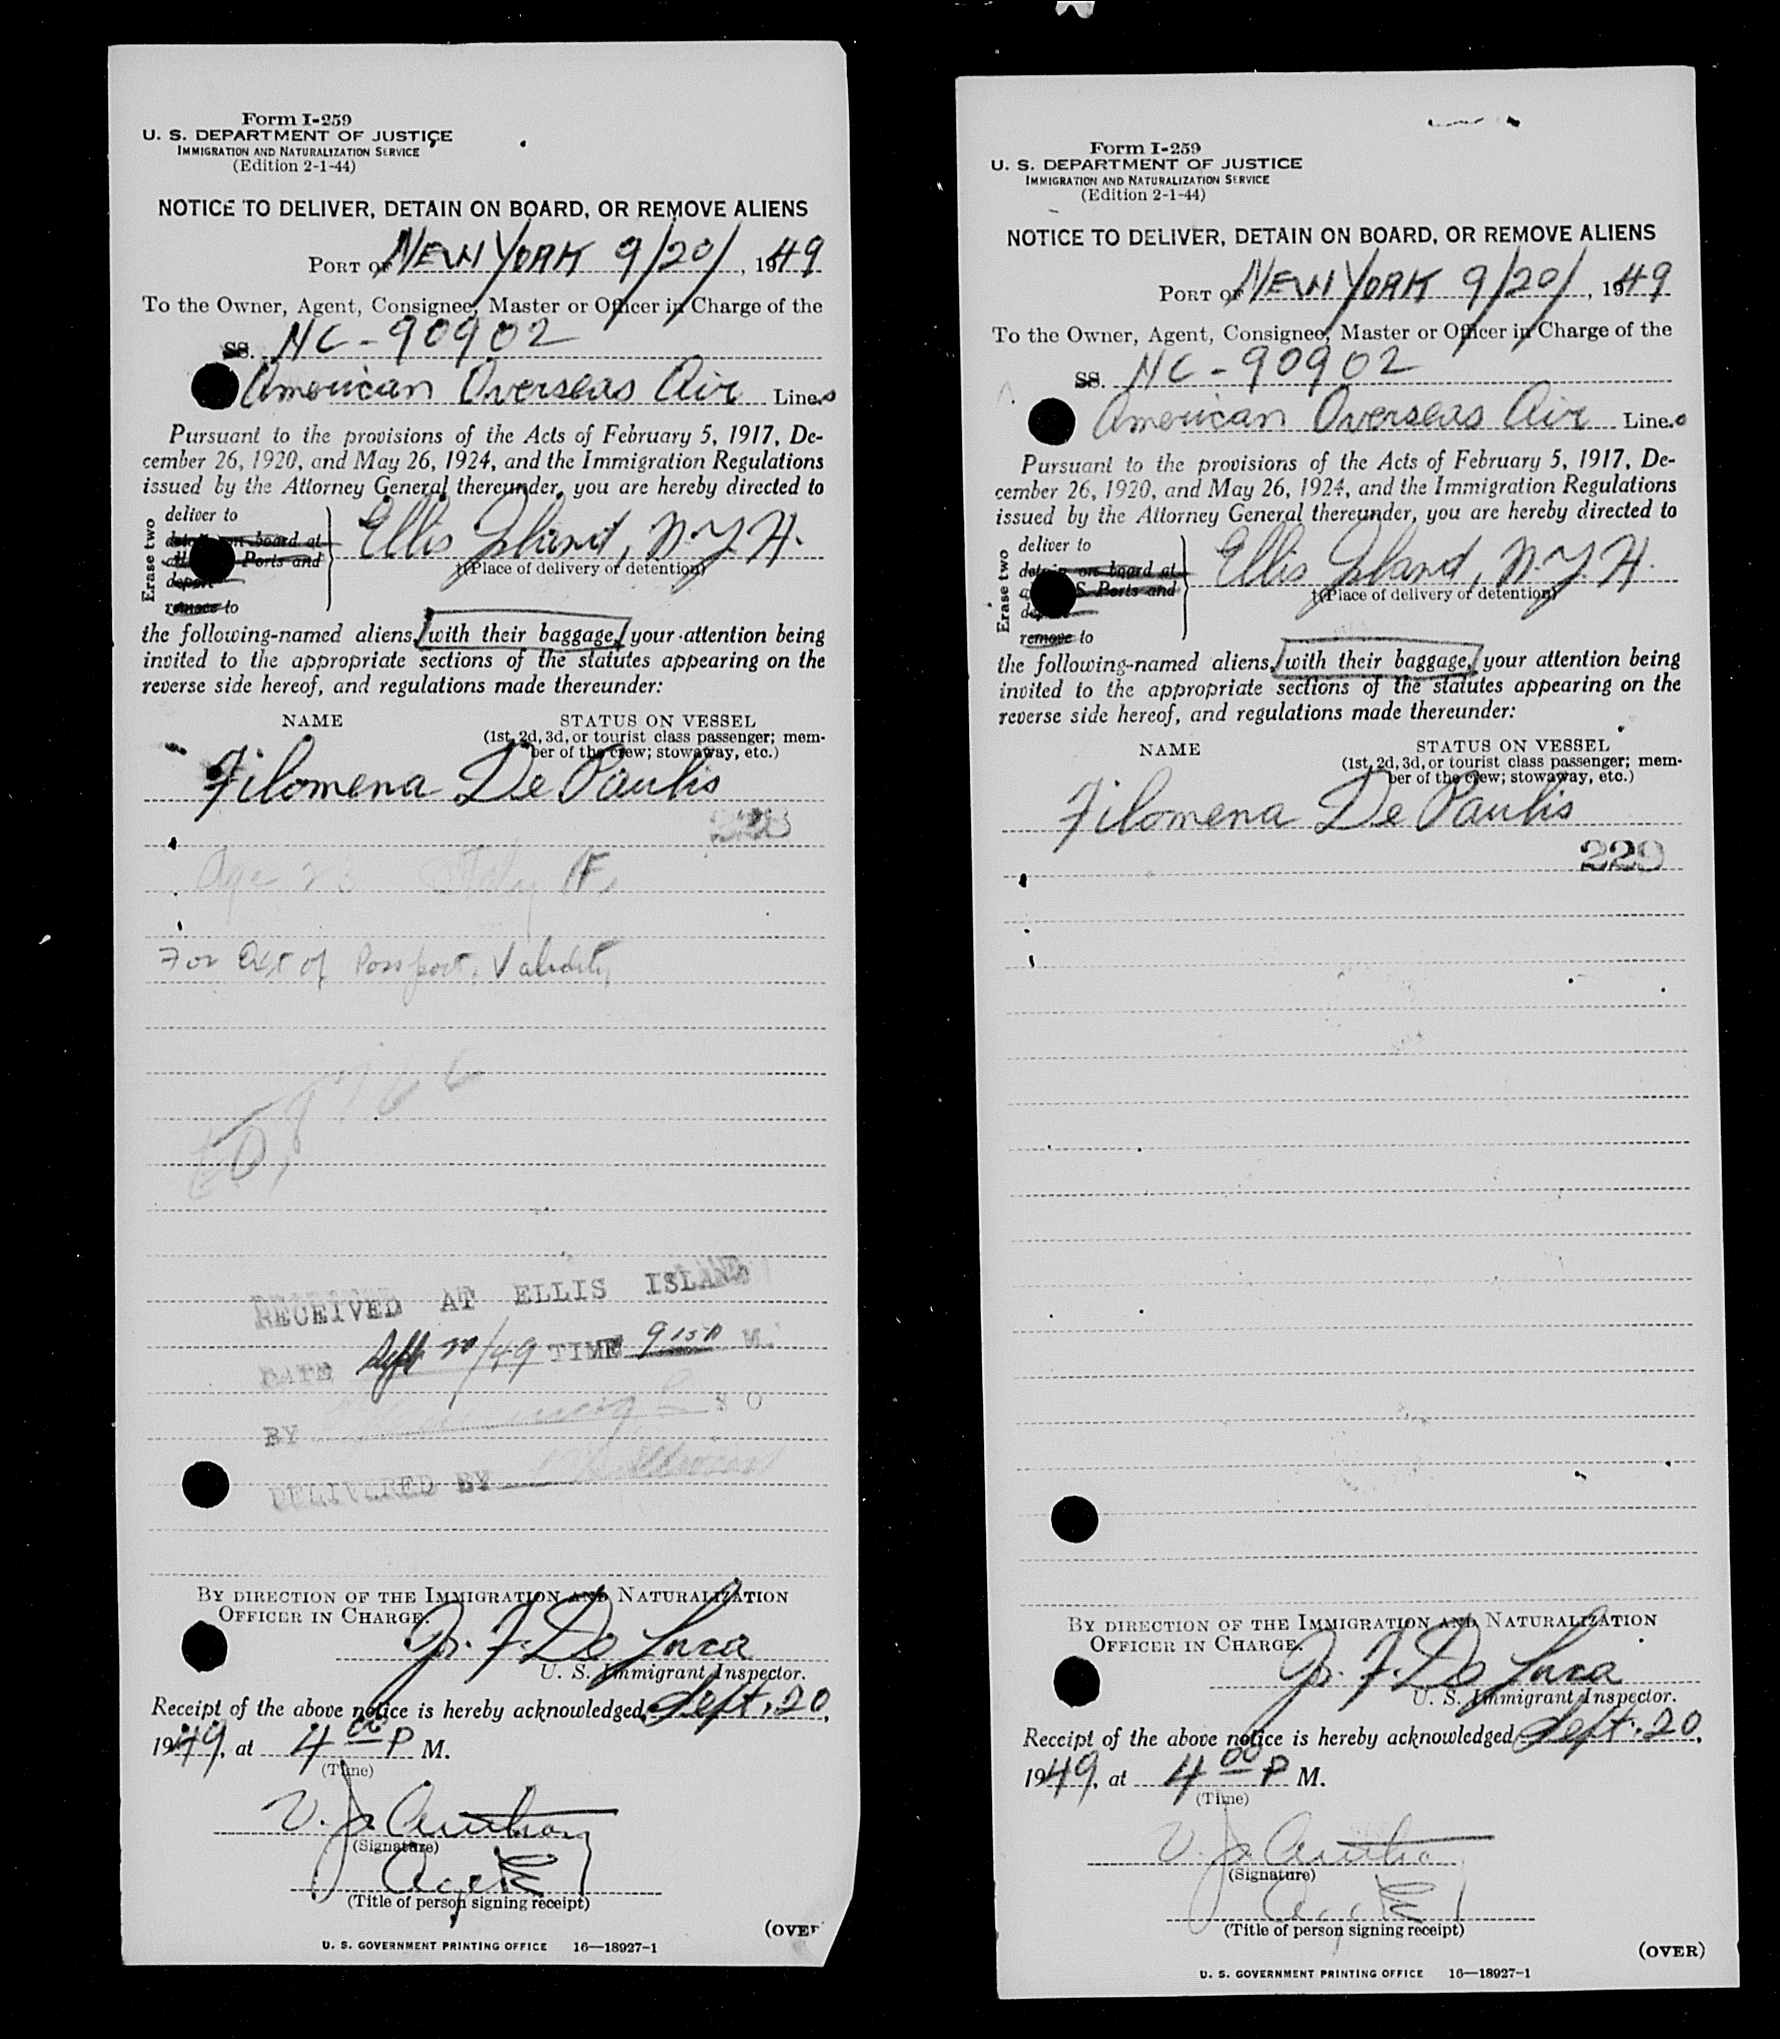 Form I-259
U. S. DEPARTMENT OF JUSTICE
IMMIGRATION AND NATURALIZATION SERVICE
(Edition 2-1-44)
NOTICE TO DELIVER, DETAIN ON BOARD, OR REMOVE ALIENS
PORT OF NEW YORK 9/20/, 1949
To the Owner, Agent, Consignee, Master or Officer in Charge of the
SS. NC-90902
American Overseas Air Lines
Pursuant to the provisions of the Acts of February 5, 1917, De-
cember 26, 1920, and May 26, 1924, and the Immigration Regulations
issued by the Attorney General thereunder, you are hereby directed to
Erase two
deliver to
detain on board at
Ports and
deport
remove to
Ellis Island, N.Y.H.
(Place of delivery or detention)
the following-named aliens, with their baggage, your attention being
invited to the appropriate sections of the statutes appearing on the
reverse side hereof, and regulations made thereunder:
NAME STATUS ON VESSEL
(1st, 2d, 3d, or tourist class passenger; mem-
ber of the crew; stowaway, etc.)
Filomena De Paulis
Age Italy F.
For Ext of Passport, Validity
RECEIVED AT ELLIS ISLAND
DATE Sept 20/49 TIME 9 15 P M.
BY S O
DELIVERED BY
BY DIRECTION OF THE IMMIGRATION AND NATURALIZATION
OFFICER IN CHARGE.
De Luca
U. S. Immigrant Inspector.
Receipt of the above notice is hereby acknowledged, Sept. 20,
1949, at 4 00 P M.
(Time)
V. J. Anthony
(Signature)
Agent
(Title of person signing receipt)
(OVER
U. S. GOVERNMENT PRINTING OFFICE 16—18927-1
Form I-259
U. S. DEPARTMENT OF JUSTICE
IMMIGRATION AND NATURALIZATION SERVICE
(Edition 2-1-44)
NOTICE TO DELIVER, DETAIN ON BOARD, OR REMOVE ALIENS
PORT OF NEW YORK 9/20/, 1949
To the Owner, Agent, Consignee, Master or Officer in Charge of the
SS. NC-90902
American Overseas Air Lines
Pursuant to the provisions of the Acts of February 5, 1917, De-
cember 26, 1920, and May 26, 1924, and the Immigration Regulations
issued by the Attorney General thereunder, you are hereby directed to
Erase two
deliver to
detain on board at
S. Ports and
remove to
Ellis Island, N.Y.H.
(Place of delivery or detention)
the following-named aliens, with their baggage, your attention being
invited to the appropriate sections of the statutes appearing on the
reverse side hereof, and regulations made thereunder:
NAME STATUS ON VESSEL
(1st, 2d, 3d, or tourist class passenger; mem-
ber of the crew; stowaway, etc.)
Filomena De Paulis
229
BY DIRECTION OF THE IMMIGRATION AND NATURALIZATION
OFFICER IN CHARGE.
De Luca
U. S. Immigrant Inspector.
Receipt of the above notice is hereby acknowledged Sept. 20,
1949, at 4 00 P M.
(Time)
V. J. Anthony
(Signature)
Agent
(Title of person signing receipt)
(OVER)
U. S. GOVERNMENT PRINTING OFFICE 16—18927-1